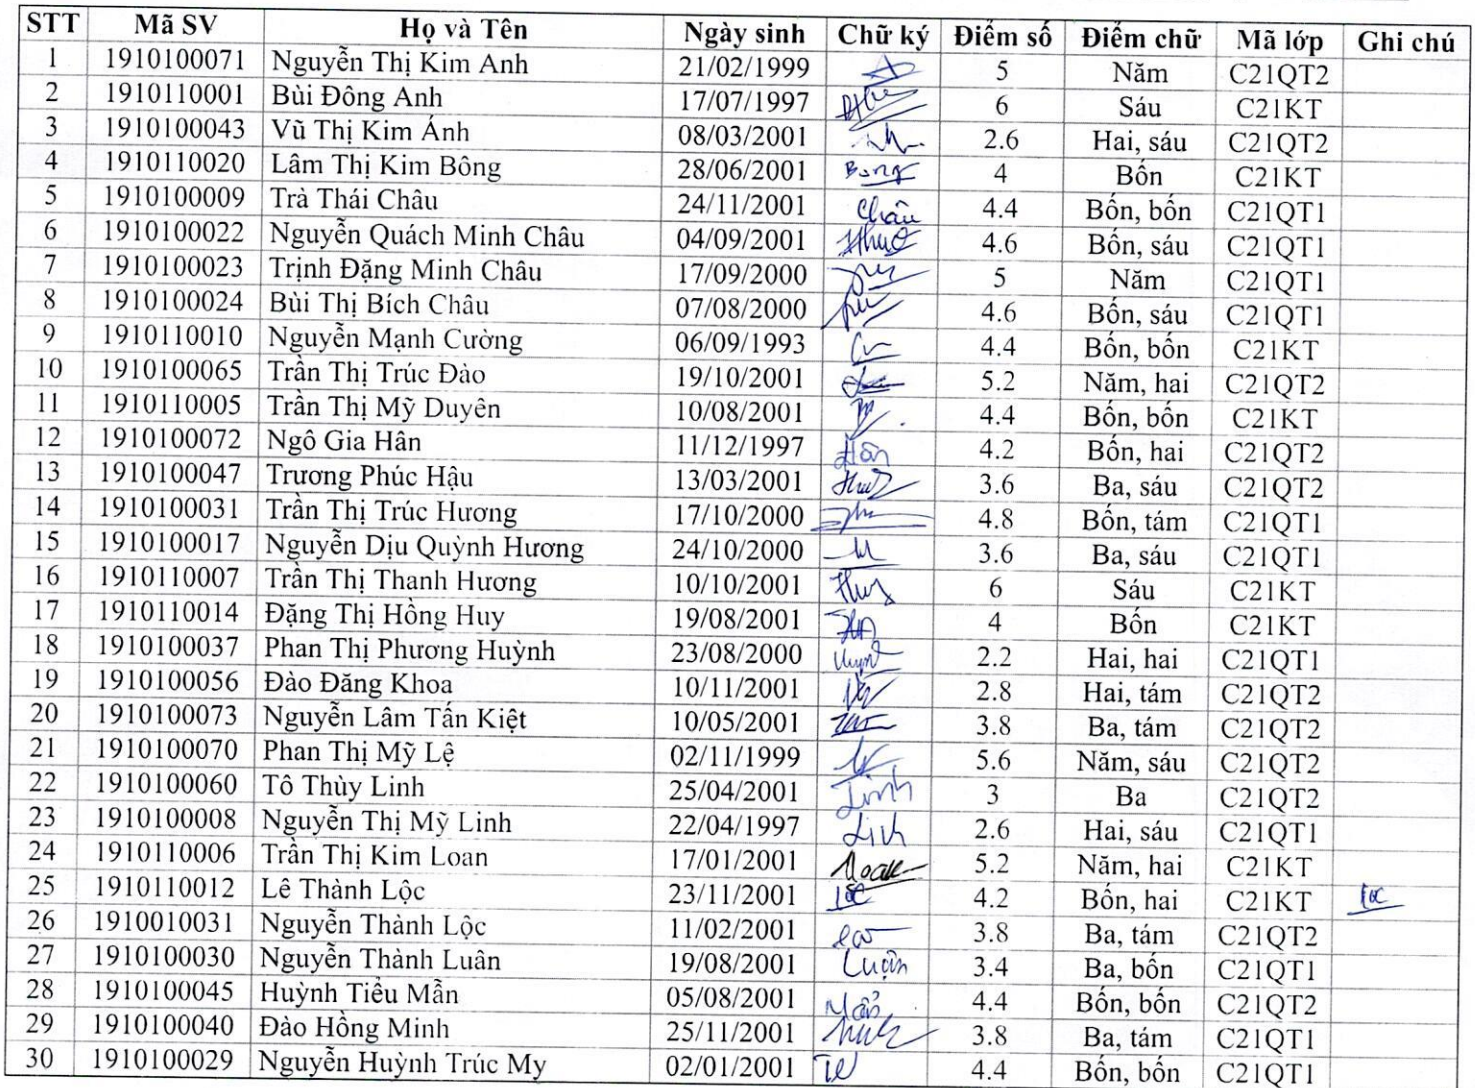 STT Mã SV Họ và Tên Ngày sinh Chữ ký Điểm số Điểm chữ Mã lớp Ghi chú
1 1910100071 Nguyễn Thị Kim Anh 21/02/1999 5 Năm C21QT2
2 1910110001 Bùi Đông Anh 17/07/1997 6 Sáu C21KT
3 1910100043 Vũ Thị Kim Ánh 08/03/2001 2.6 Hai, sáu C21QT2
4 1910110020 Lâm Thị Kim Bông 28/06/2001 Bong 4 Bốn C21KT
5 1910100009 Trà Thái Châu 24/11/2001 Châu 4.4 Bốn, bốn C21QT1
6 1910100022 Nguyễn Quách Minh Châu 04/09/2001 4.6 Bốn, sáu C21QT1
7 1910100023 Trịnh Đặng Minh Châu 17/09/2000 5 Năm C21QT1
8 1910100024 Bùi Thị Bích Châu 07/08/2000 4.6 Bốn, sáu C21QT1
9 1910110010 Nguyễn Mạnh Cường 06/09/1993 4.4 Bốn, bốn C21KT
10 1910100065 Trần Thị Trúc Đào 19/10/2001 5.2 Năm, hai C21QT2
11 1910110005 Trần Thị Mỹ Duyên 10/08/2001 4.4 Bốn, bốn C21KT
12 1910100072 Ngô Gia Hân 11/12/1997 Hân 4.2 Bốn, hai C21QT2
13 1910100047 Trương Phúc Hậu 13/03/2001 3.6 Ba, sáu C21QT2
14 1910100031 Trần Thị Trúc Hương 17/10/2000 4.8 Bốn, tám C21QT1
15 1910100017 Nguyễn Dịu Quỳnh Hương 24/10/2000 3.6 Ba, sáu C21QT1
16 1910110007 Trần Thị Thanh Hương 10/10/2001 6 Sáu C21KT
17 1910110014 Đặng Thị Hồng Huy 19/08/2001 4 Bốn C21KT
18 1910100037 Phan Thị Phương Huỳnh 23/08/2000 2.2 Hai, hai C21QT1
19 1910100056 Đào Đăng Khoa 10/11/2001 2.8 Hai, tám C21QT2
20 1910100073 Nguyễn Lâm Tấn Kiệt 10/05/2001 3.8 Ba, tám C21QT2
21 1910100070 Phan Thị Mỹ Lệ 02/11/1999 5.6 Năm, sáu C21QT2
22 1910100060 Tô Thùy Linh 25/04/2001 Linh 3 Ba C21QT2
23 1910100008 Nguyễn Thị Mỹ Linh 22/04/1997 2.6 Hai, sáu C21QT1
24 1910110006 Trần Thị Kim Loan 17/01/2001 5.2 Năm, hai C21KT
25 1910110012 Lê Thành Lộc 23/11/2001 Lộc 4.2 Bốn, hai C21KT Lộc
26 1910010031 Nguyễn Thành Lộc 11/02/2001 3.8 Ba, tám C21QT2
27 1910100030 Nguyễn Thành Luân 19/08/2001 Luân 3.4 Ba, bốn C21QT1
28 1910100045 Huỳnh Tiểu Mẫn 05/08/2001 4.4 Bốn, bốn C21QT2
29 1910100040 Đào Hồng Minh 25/11/2001 3.8 Ba, tám C21QT1
30 1910100029 Nguyễn Huỳnh Trúc My 02/01/2001 4.4 Bốn, bốn C21QT1